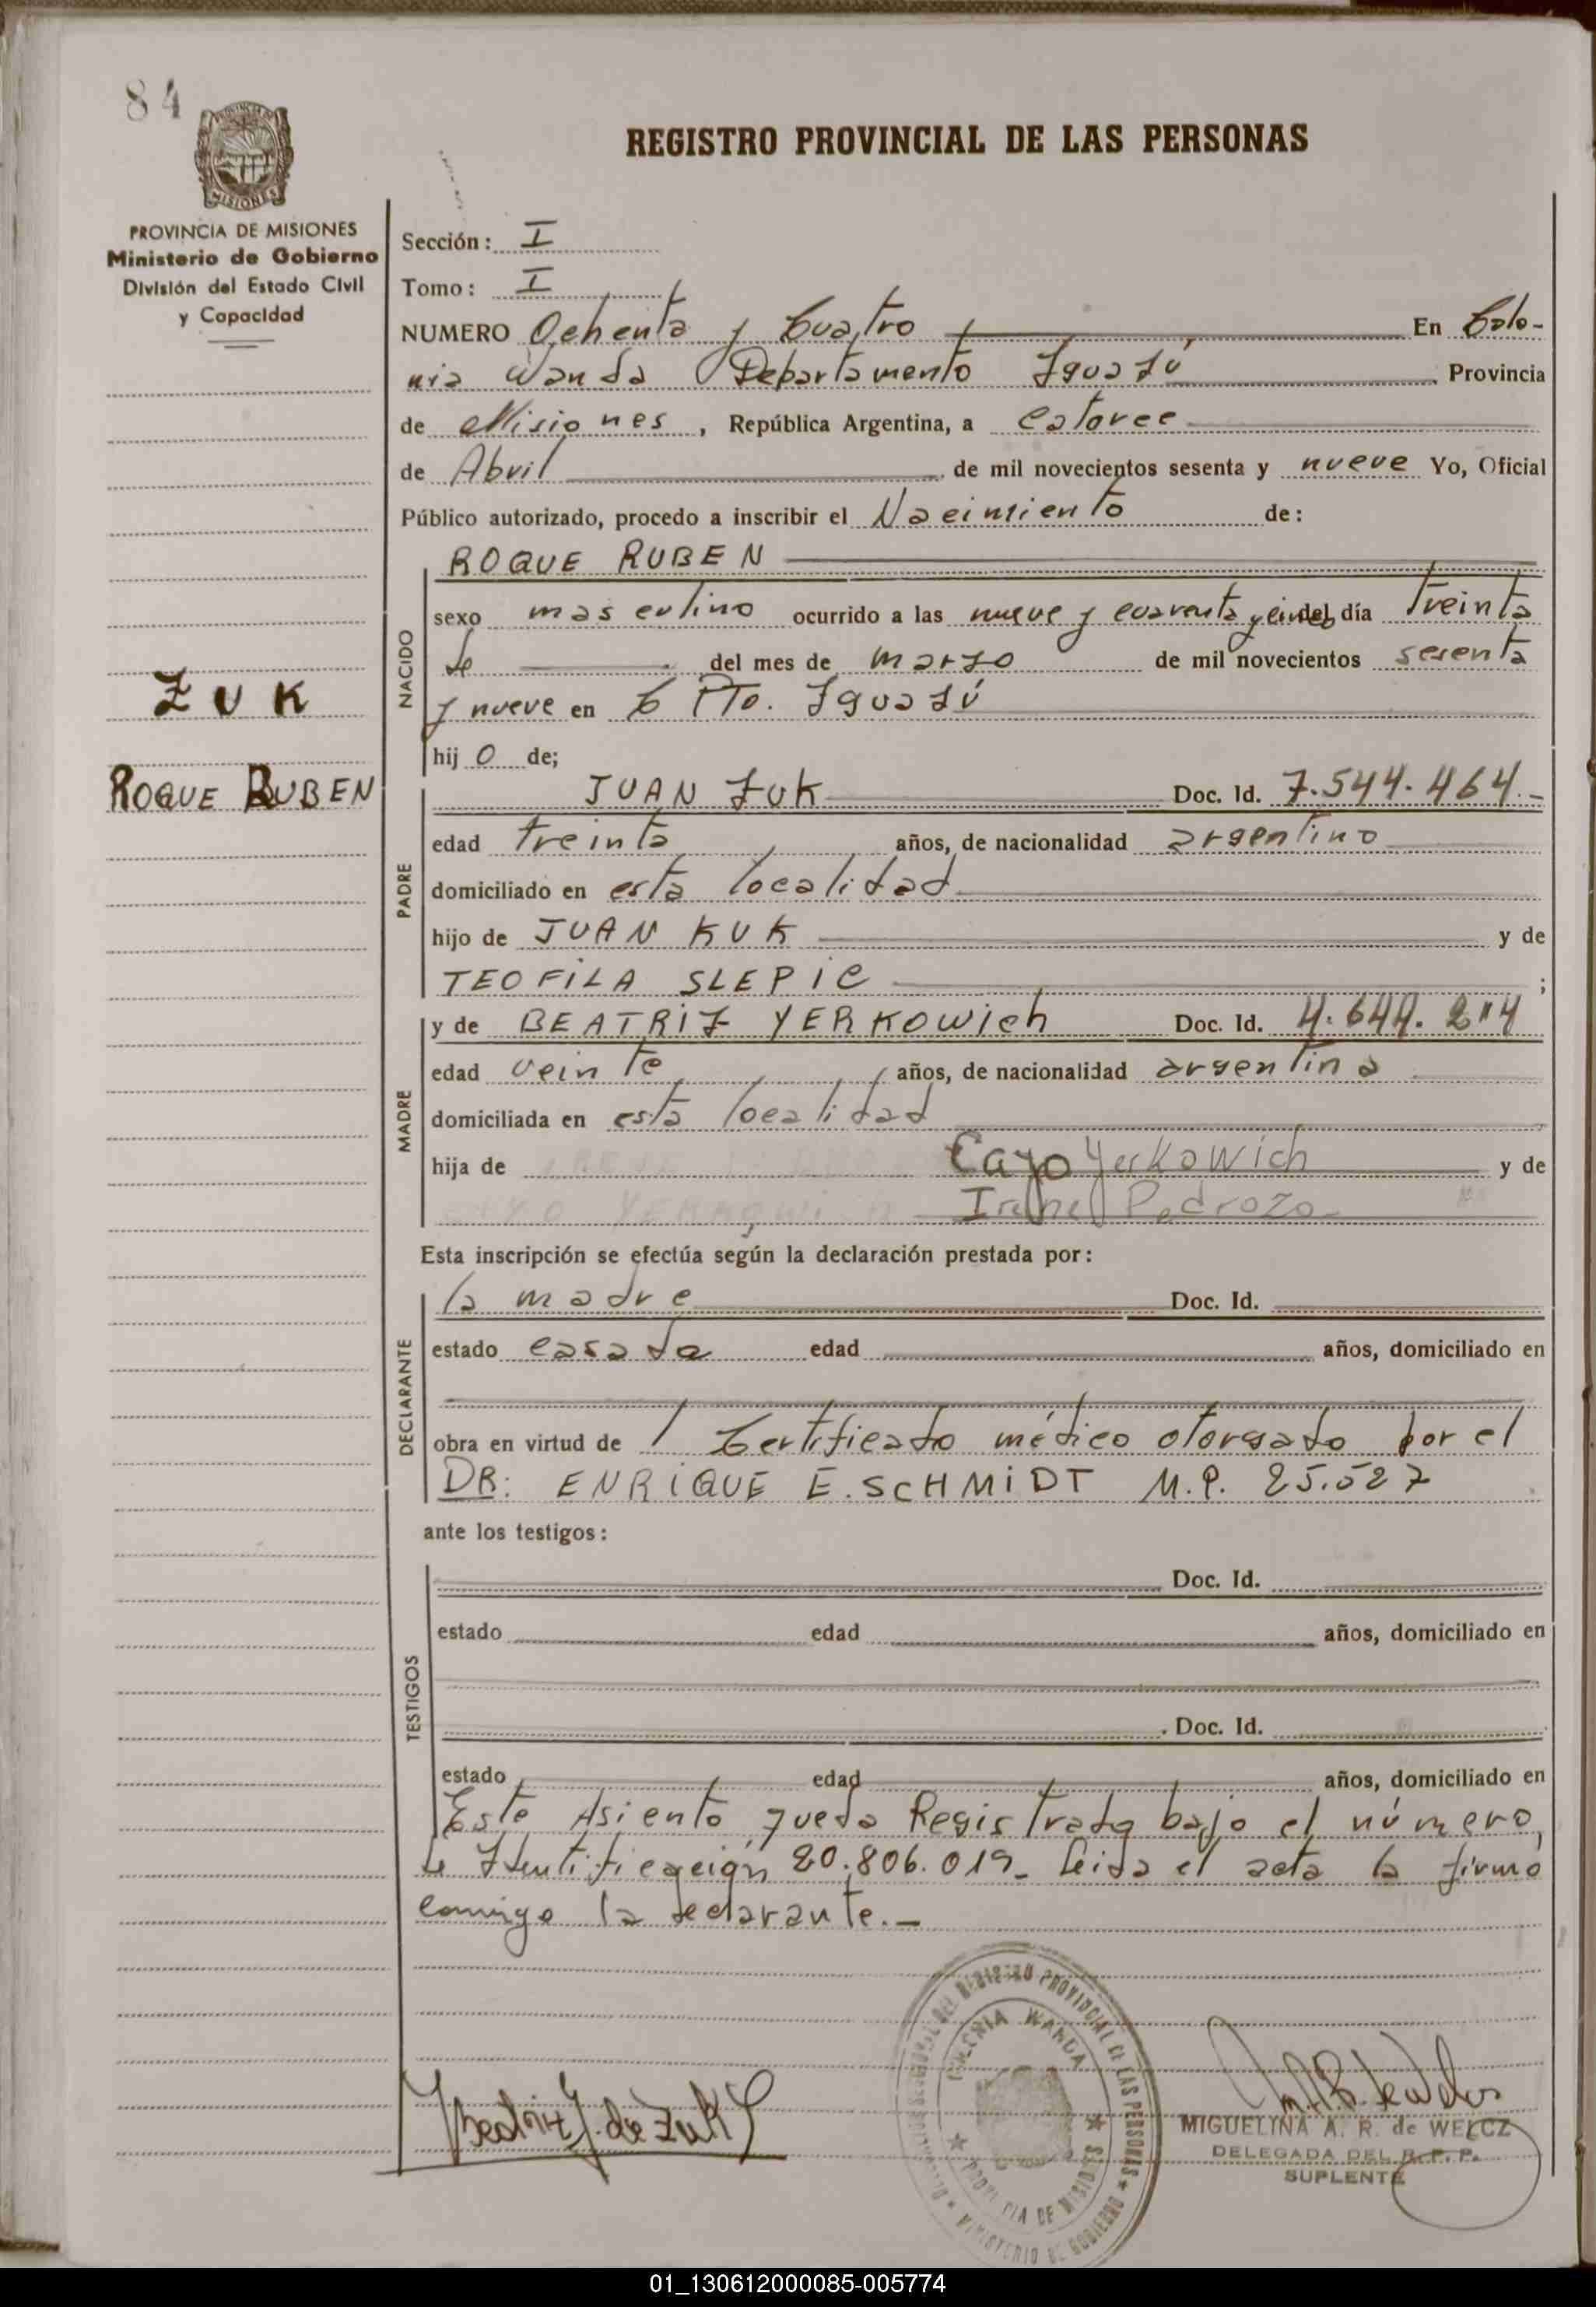 84
MISIONES
PROVINCIA DE MISIONES
Ministerio de Gobierno
División del Estado Civil
y Capacidad
REGISTRO PROVINCIAL DE LAS PERSONAS
Sección: I
Tomo: I
NUMERO Ochenta y Cuatro En Colo-
nia Wanda Departamento Iguazú Provincia
de Misiones, República Argentina, a catorce
de Abril de mil novecientos sesenta y nueve Yo, Oficial
Público autorizado, procedo a inscribir el Nacimiento de:
ROQUE RUBEN
NACIDO
sexo masculino ocurrido a las nueve y cuarenta y cinco del día treinta
de del mes de marzo de mil novecientos sesenta
y nueve en Pto. Iguazú
hijo de;
ZUK
ROQUE RUBEN
PADRE
JUAN ZUK Doc. Id. 7.544.464.-
edad treinta años, de nacionalidad argentino
domiciliado en esta localidad
hijo de JUAN KUK y de
TEOFILA SLEPIC ;
MADRE
y de BEATRIZ YERKOWich Doc. Id. 4.644.
edad veinte años, de nacionalidad argentina
domiciliada en esta localidad
hija de Cayo Yerkowich y de
Irene Pedrozo
Esta inscripción se efectúa según la declaración prestada por:
DECLARANTE
la madre Doc. Id.
estado casada edad años, domiciliado en
obra en virtud de / Certificado médico otorgado por el
DR: ENRIQUE E. SCHMIDT M.P. 25.527
ante los testigos:
TESTIGOS
Doc. Id.
estado edad años, domiciliado en
. Doc. Id.
estado edad años, domiciliado en
Este Asiento queda Registrado bajo el número
de Identificación 20.806.019- Leida el acta la firmó
comigo la declarante.-
Beatriz Y. de Zuk
DEL REGISTRO PROVINCIAL DE LAS PERSONAS
WANDA
PROVINCIA DE MISIONES
MINISTERIO DE GOBIERNO
MIGUELINA A. R. de WELCZ
DELEGADA DEL R. P. P.
SUPLENTE
01_130612000085-005774